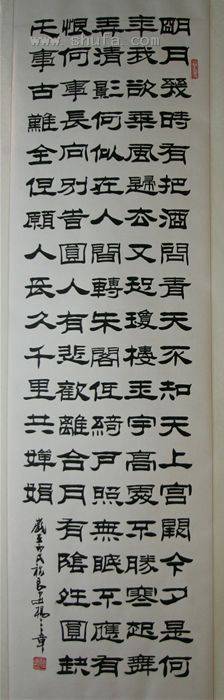 www.shufa.com
明月幾時有把酒問青天不知天上宮闕今夕是何
年我欲乘風歸去又恐瓊樓玉宇高處不勝寒起舞
弄清影何似在人間轉朱閣低綺戶照無眠不應有
恨何事長向別旹圓人有悲歡離合月有陰夝圓缺
此事古難全但願人長久千里共嬋娟